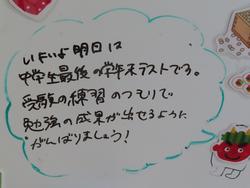 いよいよ明日は
中学生最後の学年末テストです。
受験の練習のつもりで
勉強の成果が出せるように
がんばりましょう！